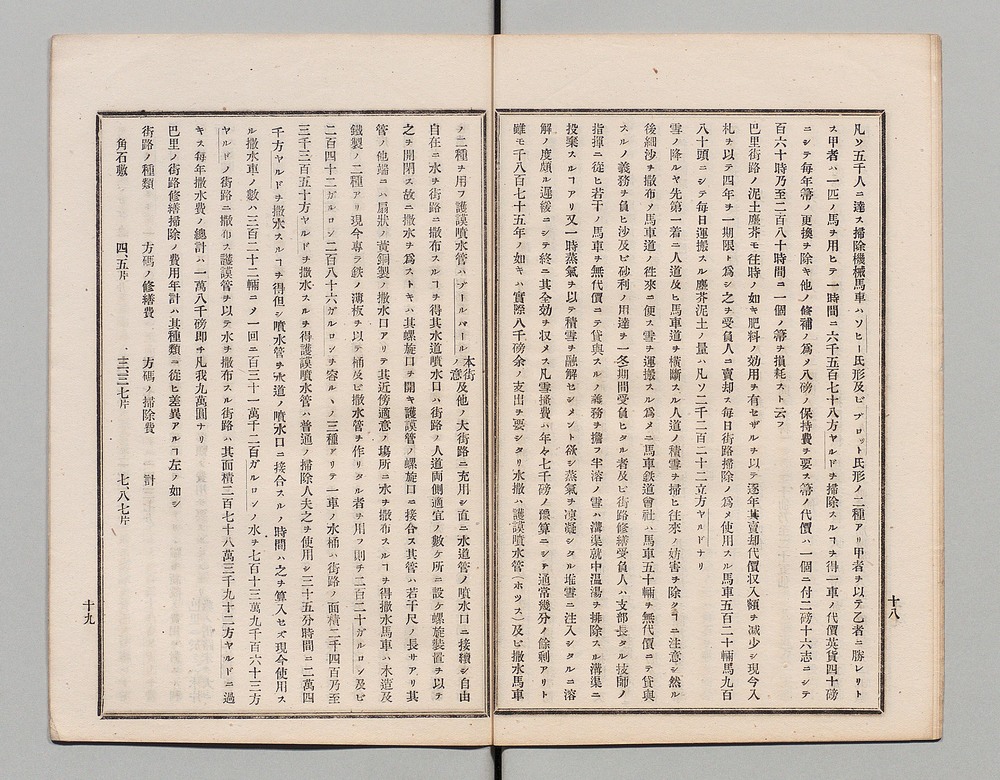 凡ソ五千人ニ達ス掃除機械馬車ハソヒー氏形及ビブロット氏形ノ二種アリ甲者ヲ以テ乙者ニ勝レリト
ス甲者ハ一匹ノ馬ヲ用ヒテ一時間ニ六千五百七十八方ヤルドヲ掃除スルヿヲ得一車ノ代價英貨四十磅
ニシテ每年箒ノ更換ヲ除キ他ノ修補ノ爲メ八磅ノ保持費ヲ要ス箒ノ代價ハ一個ニ付二磅十六志ニシテ
百六十時乃至二百八十時間ニ一個ノ箒ヲ損耗スト云フ
巴里街路ノ泥土塵芥モ往時ノ如キ肥料ノ効用ヲ有セザルヲ以テ逐年其賣却代價収入額ヲ減少シ現今入
札ヲ以テ四年ヲ一期限ト爲シ之ヲ受負人ニ賣却ス每日街路掃除ノ爲メ使用スル馬車五百二十輛馬九百
八十頭ニシテ每日運搬スル塵芥泥土ノ量ハ凡ソ二千二百二十二立方ヤルドナリ
雪ノ降ルヤ先第一着ニ人道及ヒ馬車道ヲ橫斷スル人道ノ積雪ヲ掃ヒ往來ノ妨害ヲ除クヿニ注意シ然ル
後細沙ヲ撒布メ馬車道ノ徃來ニ便ス雪ヲ運搬スル爲メニ馬車鉄道會社ハ馬車五十輛ヲ無代價ニテ貸與
スルノ義務ヲ負ヒ沙及ビ砂利ノ用達ヲ一冬期間受負ヒタル者及ビ街路修繕受負人ハ支部長タル技師ノ
指揮ニ從ヒ若干ノ馬車ヲ無代價ニテ貸與スルノ義務ヲ擔フ半溶ノ雪ハ溝渠就中温湯ヲ排除スル溝渠ニ
投棄スルヿアリ又一時蒸氣ヲ以テ積雪ヲ融解セシメント欲シ蒸氣ヲ凍凝シタル堆雪ニ注入シタルニ溶
解ノ度頗ル遲緩ニシテ終ニ其全効ヲ収メス凡雪搔費ハ年々七千磅ノ豫算ニシテ通常幾分ノ餘剩アリト
雖モ千八百七十五年ノ如キハ實際八千磅余ノ支出ヲ要シタリ水撒ハ護謨噴水管(ホツス)及ビ撒水馬車
十八
ノ二種ヲ用フ護謨噴水管ハブールバールノ木街ノ意及他ノ大街路ニ充用シ直ニ水道管ノ噴水口ニ接續シ自由
自在ニ水ヲ街路ニ撒布スルヿヲ得其水道噴水口ハ街路ノ人道兩側適宜ノ數ケ所ニ設ケ螺旋裝置ヲ以テ
之ヲ開閉ス故ニ撒水ヲ爲ストキハ其螺旋口ヲ開キ護謨管ノ螺旋口ニ接合ス其管ハ若干尺ノ長サアリ其
管ノ他端ニハ扇狀ノ黄銅製ノ撒水口アリテ其近傍適意ノ場所ニ水ヲ撒布スルヿヲ得撒水馬車ハ木造及
鐵製ノ二種アリ現今專ラ鉄ノ薄板ヲ以テ桶及ビ撒水管ヲ作リタル者ヲ用フ則チ二百二十ガルロン及ビ
二百四十二ガルロン二百八十六ガルロンヲ容ルヽノ三種アリテ一車ノ水桶ハ街路ノ面積二千四百乃至
三千三百五十方ヤルドヲ撒水スルヲ得護謨噴水管ハ普通ノ掃除人夫之ヲ使用シ三十五分時間ニ二萬四
千方ヤルドヲ撒水スルヿヲ得但シ噴水管ヲ水道ノ噴水口ニ接合スルノ時間ハ之ヲ算入セズ現今使用ス
ル撒水車ノ數ハ三百二十二輛ニメ一回ニ二百三十一萬千二百ガルロンノ水ヲ七百十三萬九千百六十三方
ヤルドノ街路ニ撒布ス護謨管ヲ以テ水ヲ撒布スル街路ハ其面積二百七十八萬三千九十二方ヤルドニ過
キス每年撒水費ノ總計ハ一萬八千磅即チ凡我九萬圓ナリ
巴里ノ街路修繕掃除ノ費用年計ハ其種類ニ從ヒ差異アルヿ左ノ如シ
街路ノ種類 方碼ノ修繕費 方碼ノ掃除費 計
角石敷 四、五片 三、三七片 七、八七片
十九